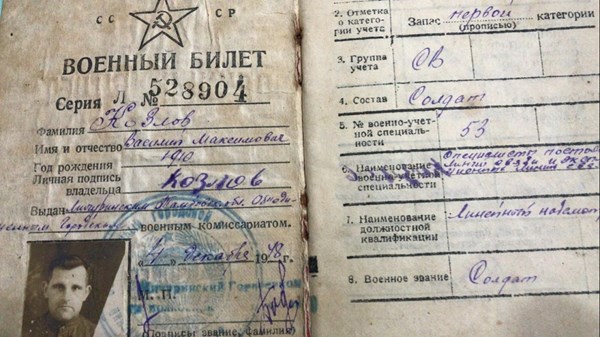 СС СР
ВОЕННЫЙ БИЛЕТ
Серия Л № 528904
Фамилия Козлов
Имя и отчество Василий Максимович
Год рождения 1910
Личная подпись
владельца Козлов
Выдан
военным комиссариатом.
декабря 1948 г.
М. П.
(Подпись, звание, фамилия)
2. Отметка
о категории
учета
Запас первой категории
(прописью)
3. Группа
учета
СВ
4. Состав
Солдат
5. № военно-учет-
ной специаль-
ности
53
6. Наименование
военно-учетной
специальности
Специалисты
линий связи и
7. Наименование
должностной
квалификации
Линейный
8. Военное звание
Солдат